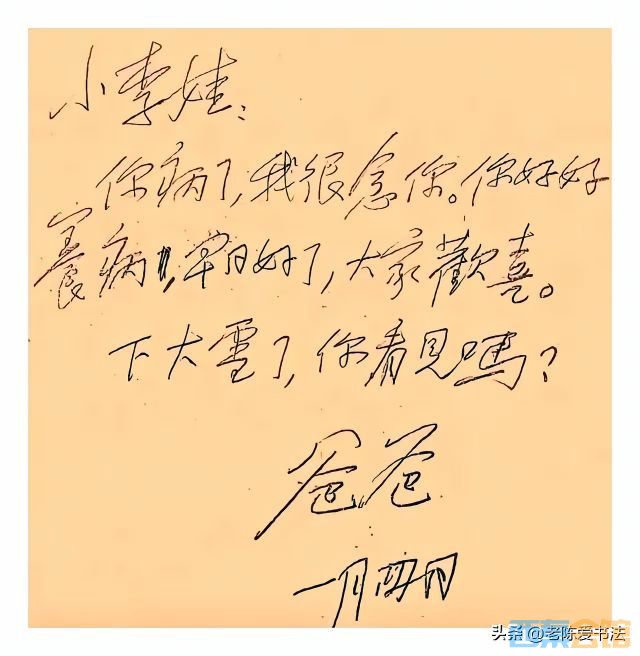 小李娃：
你病了，我很念你。你好好
養病，早日好了，大家歡喜。
下大雪了，你看見嗎？
爸爸
一月四日
头条 @老陈爱书法